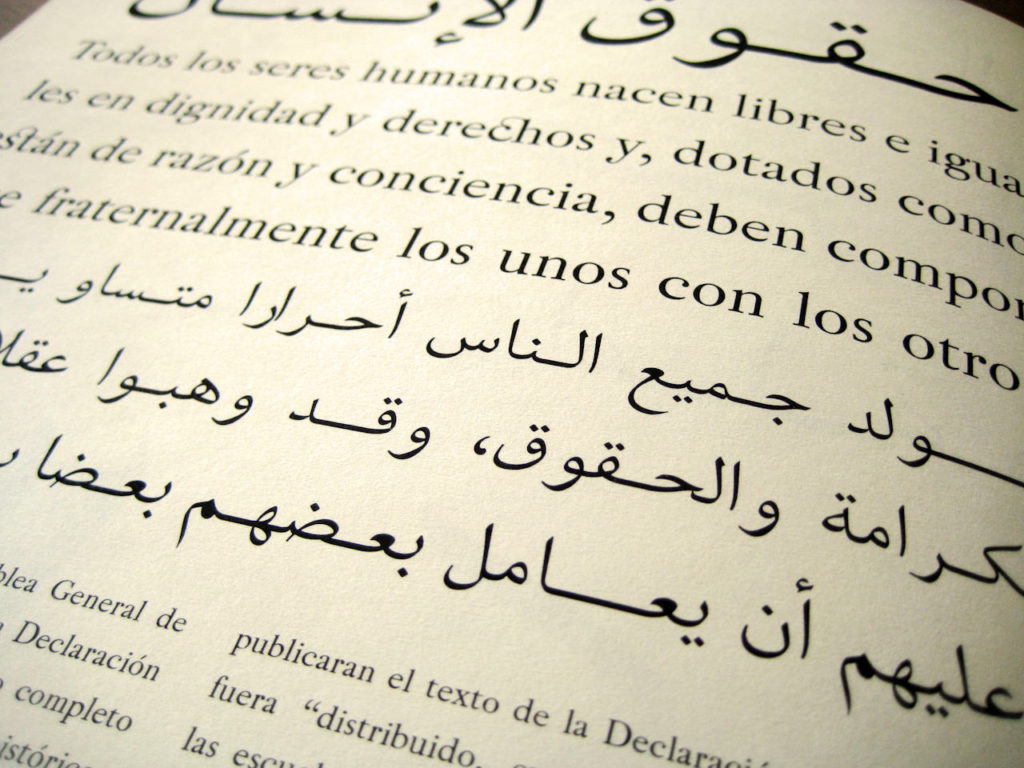 حقوق الإنسان
Todos los seres humanos nacen libres e igua
les en dignidad y derechos y, dotados como
están de razón y conciencia, deben compor
e fraternalmente los unos con los otro
ولد جميع الناس أحرارا متساوي
كرامة والحقوق، وقد وهبوا عقلا
عليهم أن يعامل بعضهم بعضا
blea General de
Declaración
completo
istóric
publicaran el texto de la Declaració
fuera “distribuido,
las escuel